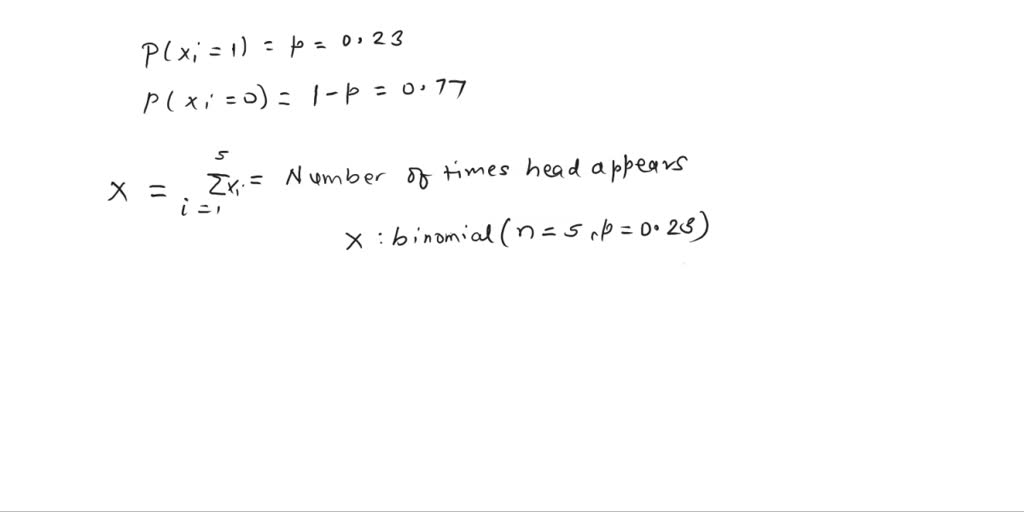 P(xᵢ = 1) = p = 0.23
P(xᵢ = 0) = 1 - p = 0.77
X = ∑⁵ᵢ₌₁ xᵢ = Number of times head appears
X : binomial (n = 5, p = 0.23)